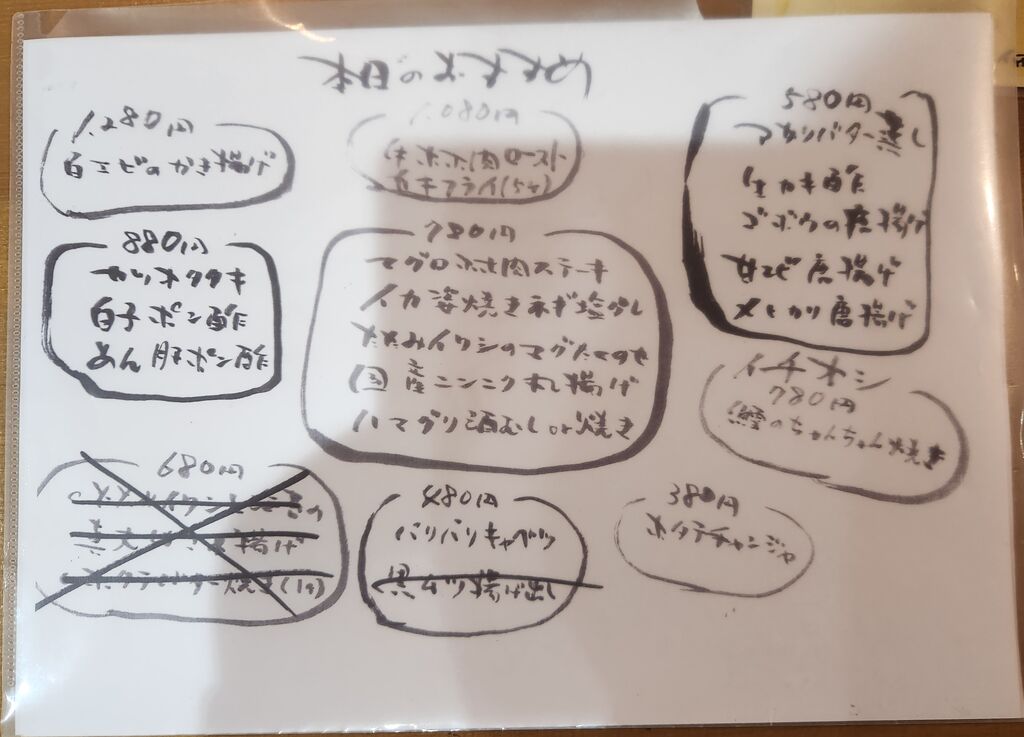 本日の
1,280円
白エビのかき揚げ
1,080円
ホホ肉ロースト
カキフライ(5ヶ)
580円
アサリバター蒸し
生カキ酢
ゴボウの唐揚げ
甘エビ唐揚げ
メヒカリ唐揚げ
880円
カツオタタキ
白子ポン酢
あん肝ポン酢
780円
マグロホホ肉ステーキ
イカ姿焼きネギ塩ダレ
たたみイワシのマグたてのせ
国産ニンニク丸揚げ
ハマグリ酒むしor焼き
イチオシ
780円
鱈のちゃんちゃん焼き
680円
揚げ
ホタテバター焼き(1ヶ)
480円
パリパリキャベツ
黒ムツ揚げ出し
380円
ホタテチャンジャ